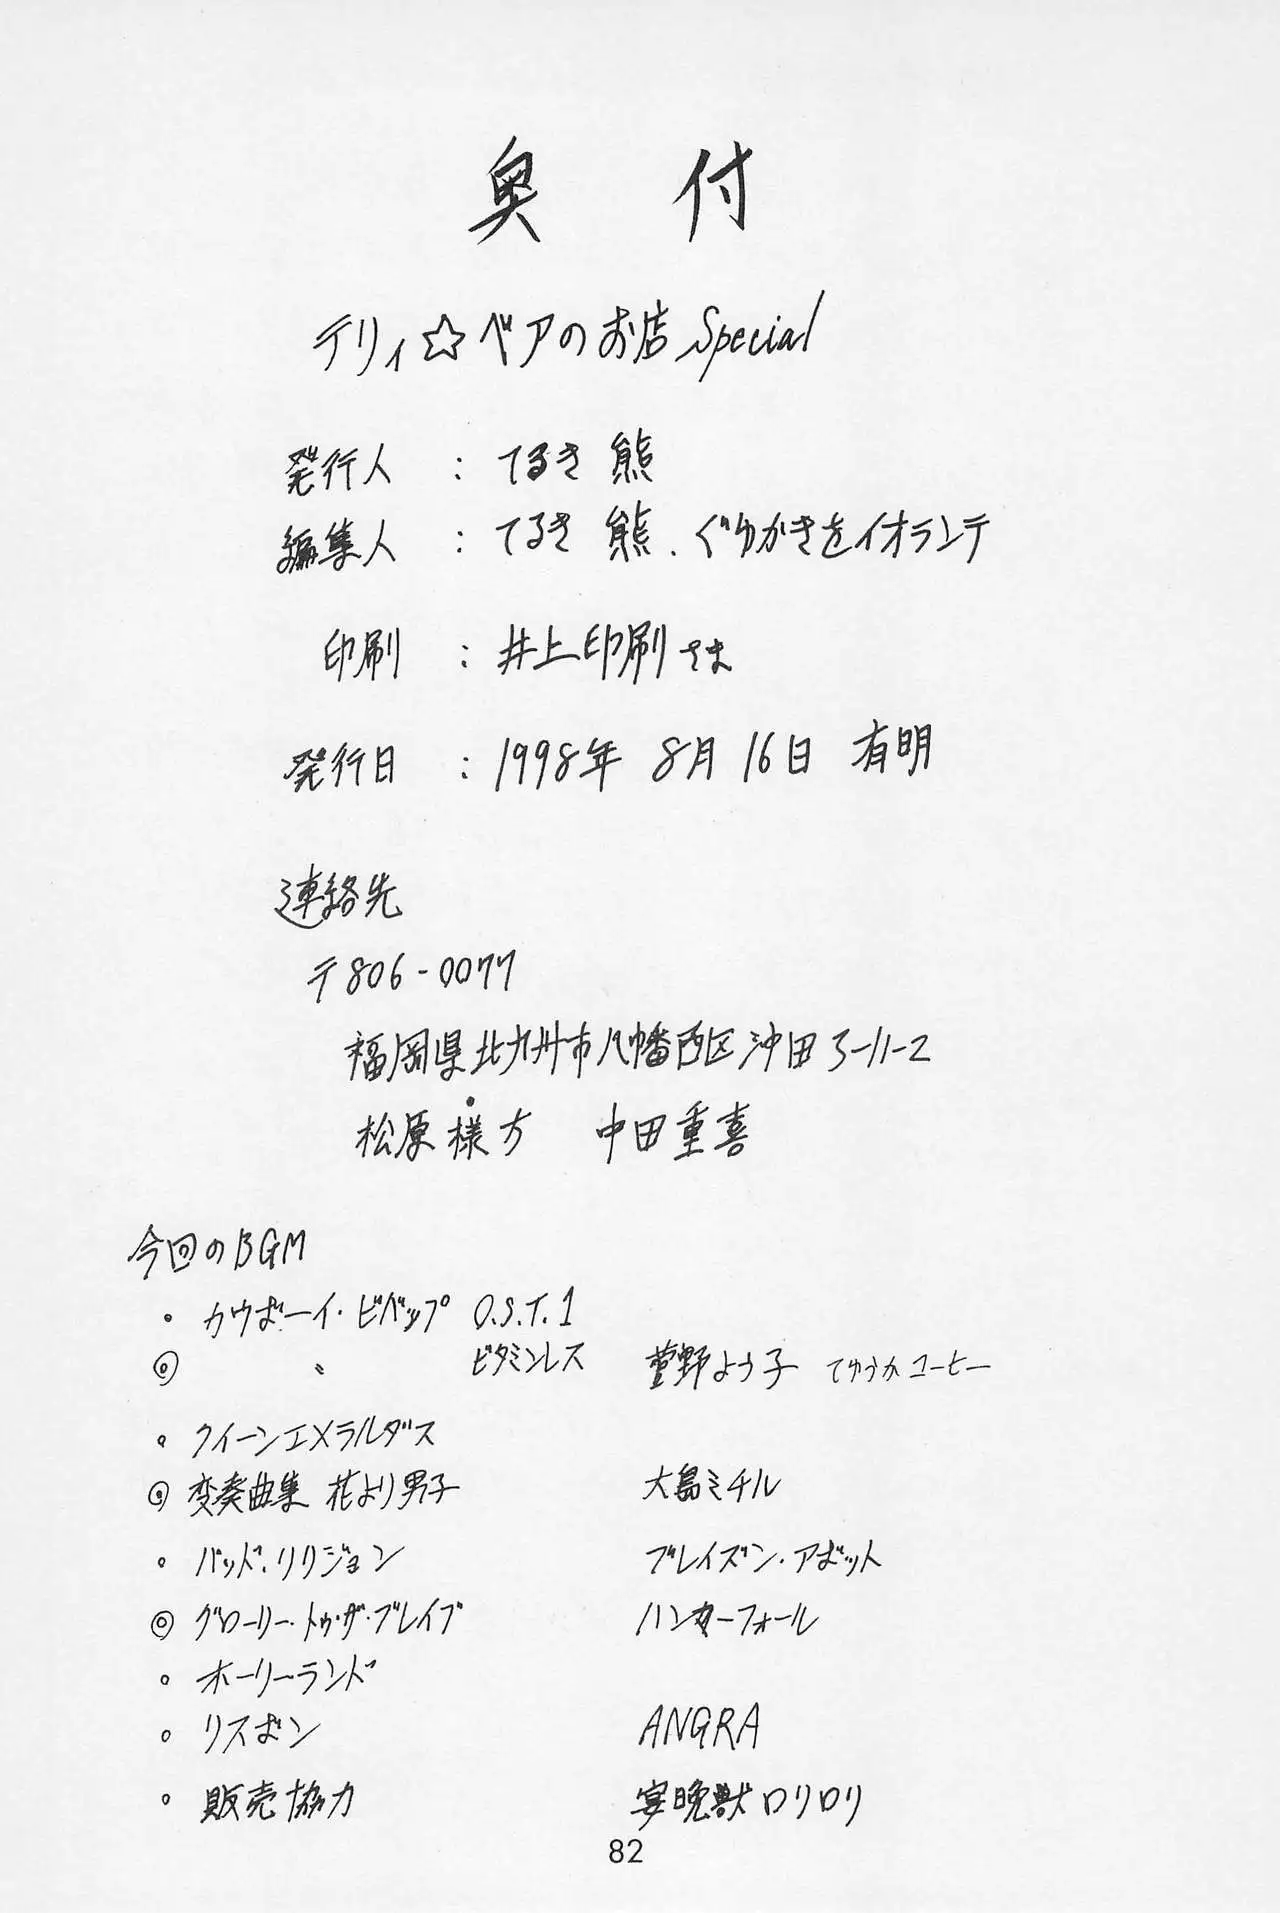 奥付
テリィ☆ベアのお店 Special
発行人 : てるき熊
編集人 : てるき熊、ぐゆかきをイオランテ
印刷 : 井上印刷さま
発行日 : 1998年 8月 16日 有明
連絡先
〒806-0077
福岡県北九州市八幡西区沖田3-11-2
松原様方 中田重喜
今回のBGM
・カウボーイ・ビバップ O.S.T.1
◎ 〃 ビタミンレス 菅野よう子
・クイーンエメラルダス
◎変奏曲集 花より男子 大島ミチル
・バッド・リリジョン ブレイズン・アボット
◎グローリー・トゥ・ザ・ブレイブ ハンマーフォール
・ホーリーランド
・リスボン ANGRA
・販売協力 宴晩獣ロリロリ
82